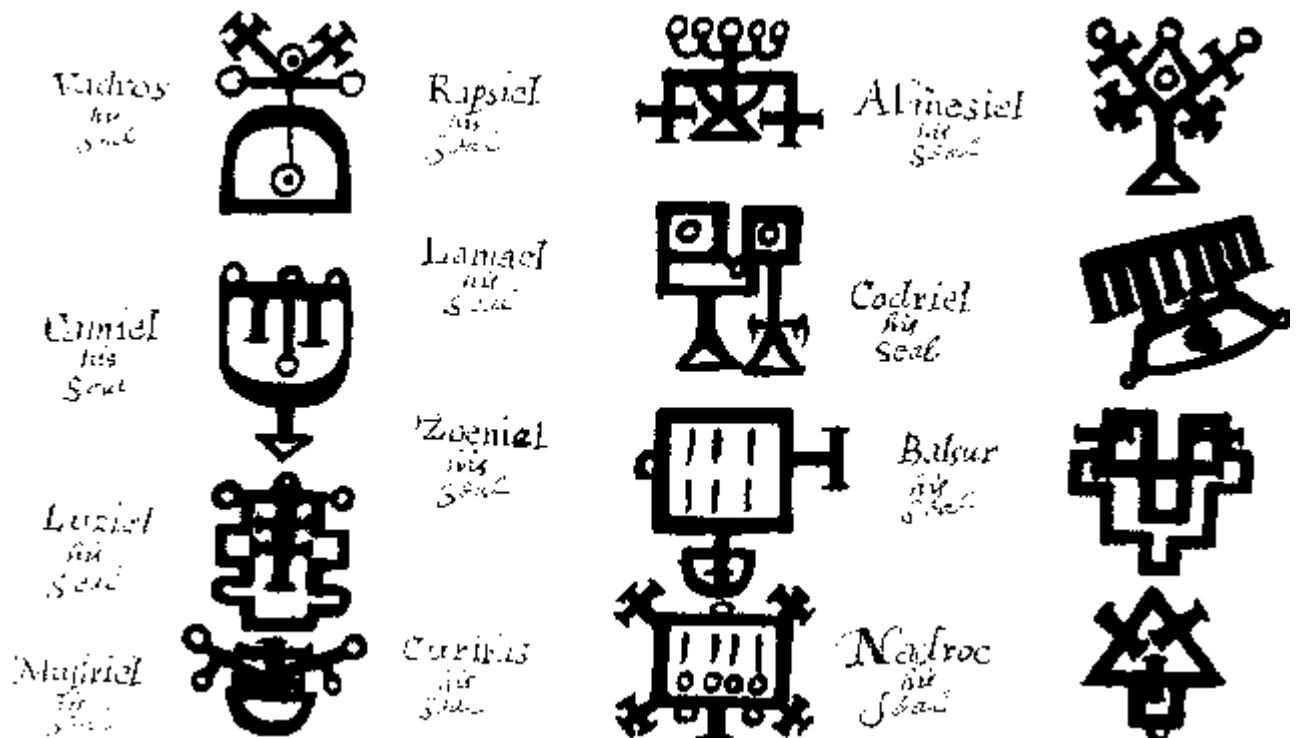 Vadros
his
Seal
Rapsiel
his
Seal
Almesiel
his
Seal
Camiel
his
Seal
Lamael
his
Seal
Codriel
his
Seal
Luziel
his
Seal
Zoeniel
his
Seal
Balsur
his
Seal
his
Seal
his
Seal
Nadroc
his
Seal